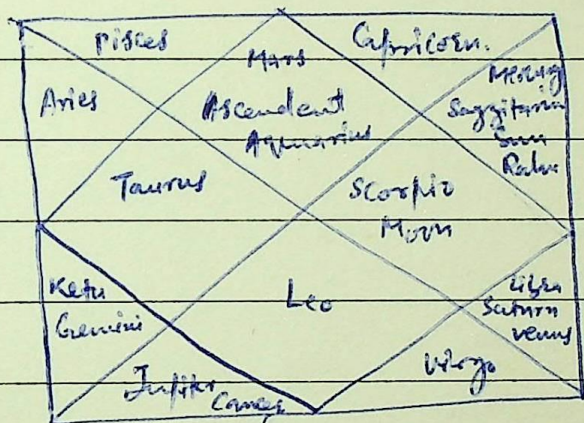 Pisces
Mars
Capricorn.
Aries
Ascendent
Aquarius
Mercury
Saggitarius
Sun
Rahu
Taurus
Scorpio
Moon
Ketu
Gemini
Leo
Libra
Saturn
Venus
Jupiter
Cancer
Virgo